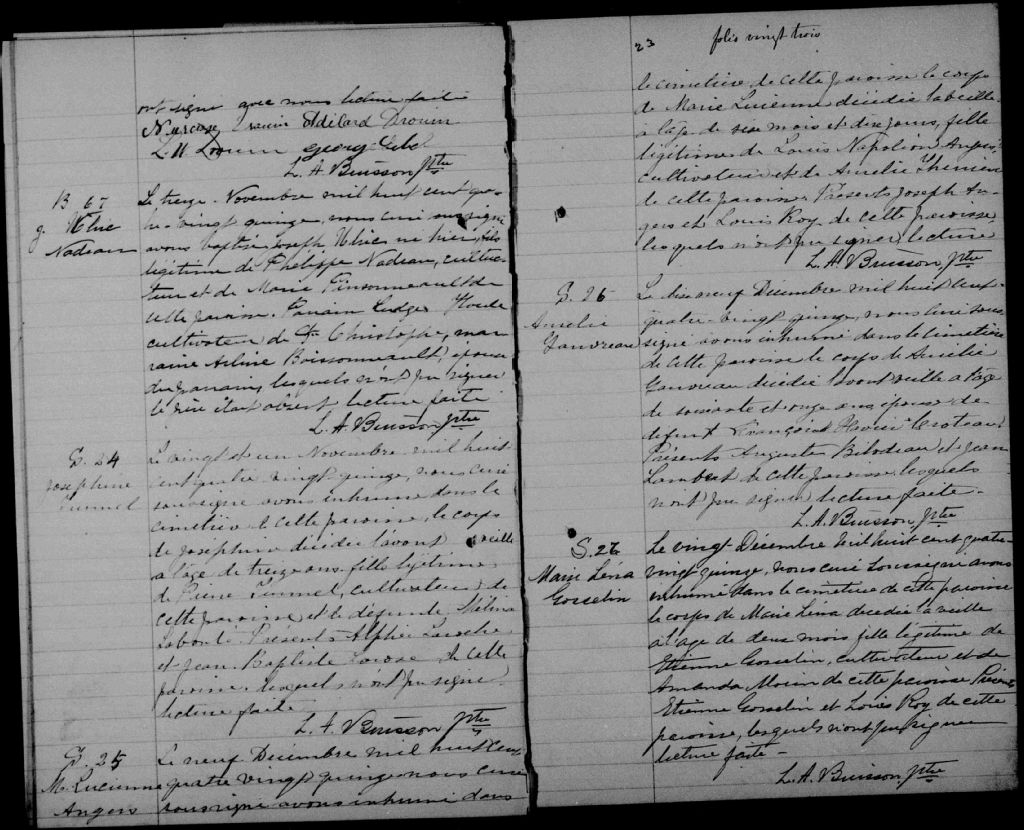 ont signé avec nous lecture faite
Narcisse Drouin Adélard Drouin
L. N. Drouin Georg
L. A. Buisson Ptre
B 67
g. Ulric
Nadeau
Le treize Novembre mil huit cent qua-
tre-vingt quinze, nous curé soussigné
avons baptisé Joseph Ulric né hier, fils
légitime de Philippe Nadeau, cultiva-
teur et de Marie Pinsonneault de
cette paroisse. Parrain Ludger Houle
cultivateur de St Christophe, mar-
raine Arline Boissonneault, épouse
du parrain, lesquels n'ont pu signer
le père était absent lecture faite
L. A. Buisson Ptre
S. 24
Josephine
Le vingt et un Novembre mil huit
cent quatre vingt quinze, nous curé
soussigné avons inhumé dans le
cimetière de cette paroisse, le corps
de Josephine décédée l'avant veille
à l'âge de treize ans fille légitime
de Pierre cultivateur de
cette paroisse et de défunte Mélina
Présents Alphée Laroche
et Jean-Baptiste de cette
paroisse lesquels n'ont pu signer
lecture faite
L. A. Buisson Ptre
S. 25
M. Lucienne
Angers
Le neuf Décembre mil huit cent
quatre vingt quinze nous curé
soussigné avons inhumé dans
23 folio vingt trois
le cimetière de cette paroisse le corps
de Marie Lucienne décédée la veille
à l'âge de six mois et dix jours, fille
légitime de Louis Napoléon Angers
cultivateur et de Amélie Therrien
de cette paroisse. Présents Joseph An-
gers et Louis Roy de cette paroisse
lesquels n'ont pu signer lecture
L. A. Buisson Ptre
S. 26
Amélie
Gauvreau
Le dix neuf Décembre mil huit cent
quatre-vingt quinze, nous curé sous-
signé avons inhumé dans le cimetière
de cette paroisse le corps de Amélie
Gauvreau décédée l'avant veille a l'âge
de soixante et onze ans épouse de
défunt François Croteau
Présents Augustin Bilodeau et Jean
Lambert de cette paroisse lesquels
n'ont pu signer lecture faite-
L. A. Buisson, Ptre
S. 27
Marie Léna
Gosselin
Le vingt Décembre mil huit cent quatre-
vingt quinze, nous curé soussigné avons
inhumé dans le cimetière de cette paroisse
le corps de Marie Léna décédée la veille
à l'age de deux mois fille légitime de
Etienne Gosselin, cultivateur et de
Amanda Morin de cette paroisse Présents
Etienne Gosselin et Louis Roy de cette
paroisse, lesquels n'ont pu signer
lecture faite-
L. A. Buisson Ptre